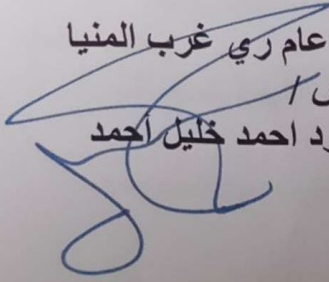 عام ري غرب المنيا
/
احمد خليل أحمد